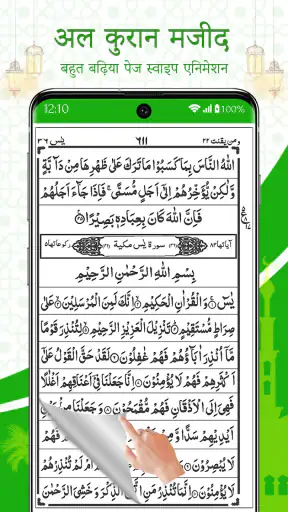 अल कुरान मजीद
बहुत बढ़िया पेज स्वाइप एनिमेशन
12:10
100%
يٰسٓ ٣٦
٦١١
ومن يقنت ٢٢
اللّٰهُ النَّاسَ بِمَا كَسَبُوْا مَا تَرَكَ عَلٰى ظَهْرِهَا مِنْ دَآبَّةٍ
وَّلٰكِنْ يُّؤَخِّرُهُمْ اِلٰٓى اَجَلٍ مُّسَمًّى ۚ فَاِذَا جَآءَ اَجَلُهُمْ
فَاِنَّ اللّٰهَ كَانَ بِعِبَادِهٖ بَصِيْرًا
اٰياتها ٨٣ سورة يٰسٓ مكية ركوعاتها ٥
بِسْمِ اللّٰهِ الرَّحْمٰنِ الرَّحِيْمِ
يٰسٓ ۚ وَالْقُرْاٰنِ الْحَكِيْمِ ۙ اِنَّكَ لَمِنَ الْمُرْسَلِيْنَ ۙ عَلٰى
صِرَاطٍ مُّسْتَقِيْمٍ ؕ تَنْزِيْلَ الْعَزِيْزِ الرَّحِيْمِ ۙ لِتُنْذِرَ قَوْمًا
مَّاۤ اُنْذِرَ اٰبَآؤُهُمْ فَهُمْ غٰفِلُوْنَ لَقَدْ حَقَّ الْقَوْلُ عَلٰٓى
اَكْثَرِهِمْ فَهُمْ لَا يُؤْمِنُوْنَ اِنَّا جَعَلْنَا فِيْٓ اَعْنَاقِهِمْ اَغْلٰلًا
فَهِيَ اِلَى الْاَذْقَانِ فَهُمْ مُّقْمَحُوْنَ وَجَعَلْنَا مِنْۢ بَيْنِ
اَيْدِيْهِمْ سَدًّا وَّمِنْ
لَا يُبْصِرُوْنَ اَمْ لَمْ تُنْذِرْهُمْ
لَا يُؤْمِنُوْنَ اِنَّمَا تُنْذِرُ مَنِ اتَّبَعَ الذِّكْرَ وَخَشِيَ الرَّحْمٰنَ